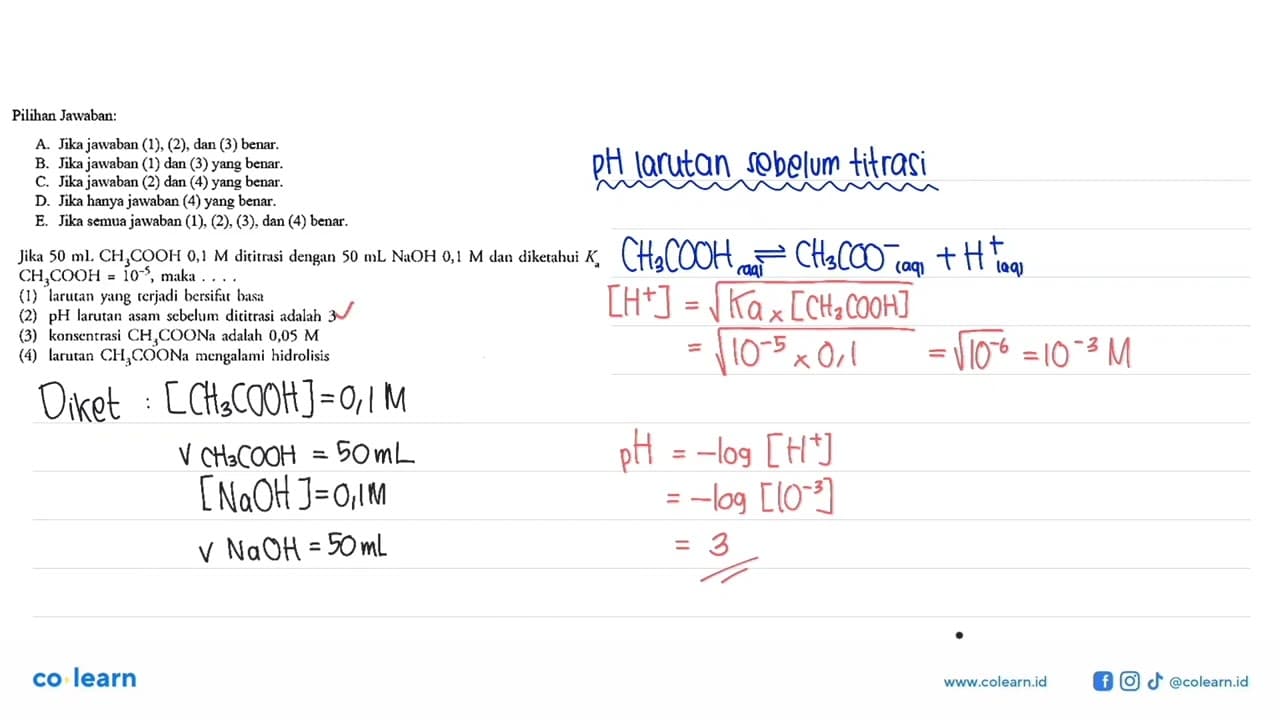 Pilihan Jawaban:
A. Jika jawaban (1), (2), dan (3) benar.
B. Jika jawaban (1) dan (3) yang benar.
C. Jika jawaban (2) dan (4) yang benar.
D. Jika hanya jawaban (4) yang benar.
E. Jika semua jawaban (1), (2), (3), dan (4) benar.
Jika 50 mL CH₃COOH 0,1 M dititrasi dengan 50 mL NaOH 0,1 M dan diketahui Kₐ
CH₃COOH = 10⁻⁵, maka . . . .
(1) larutan yang terjadi bersifat basa
(2) pH larutan asam sebelum dititrasi adalah 3 ✓
(3) konsentrasi CH₃COONa adalah 0,05 M
(4) larutan CH₃COONa mengalami hidrolisis
Diket : [CH₃COOH] = 0,1 M
V CH₃COOH = 50 mL
[NaOH] = 0,1 M
V NaOH = 50 mL
pH larutan sebelum titrasi
CH₃COOH (aq) ⇌ CH₃COO⁻ (aq) + H⁺ (aq)
[H⁺] = √Ka × [CH₃COOH]
= √10⁻⁵ × 0,1 = √10⁻⁶ = 10⁻³ M
pH = -log [H⁺]
= -log [10⁻³]
= 3
co learn
www.colearn.id
@colearn.id